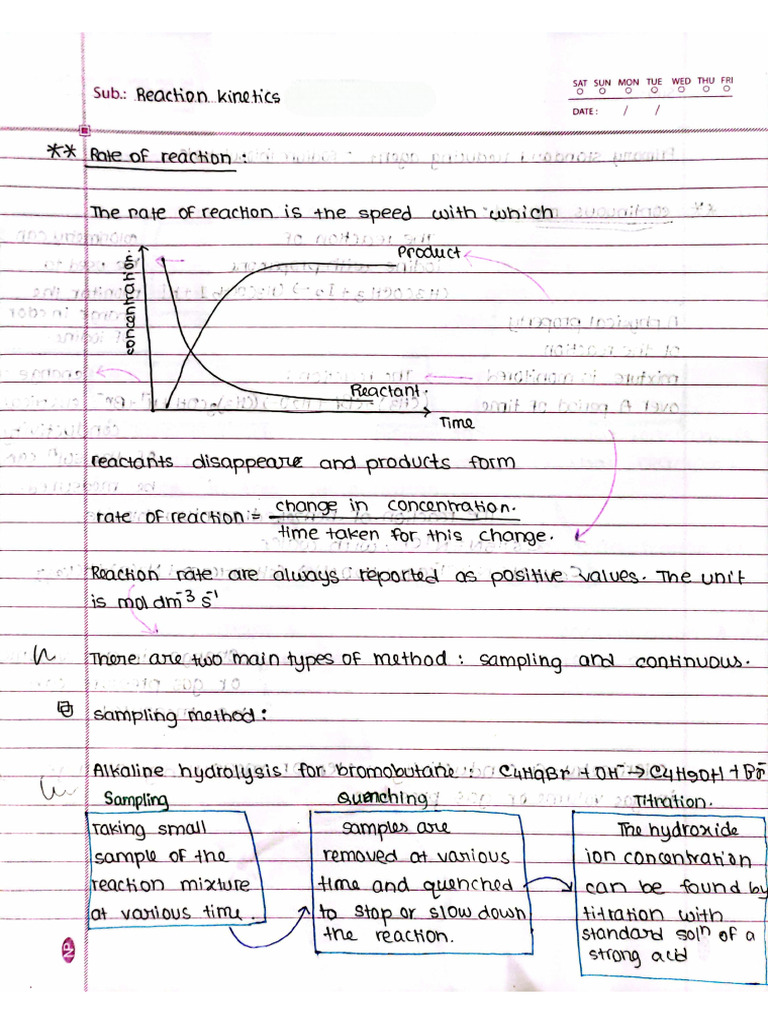 Sub.: Reaction kinetics
SAT SUN MON TUE WED THU FRI
DATE: / /
** Rate of reaction :
The rate of reaction is the speed with which
concentration
Product
Reactant.
Time
reactants disappeare and products form
rate of reaction = change in concentration.
time taken for this change.
Reaction rate are always reported as positive values. The unit
is mol dm⁻³ s⁻¹
There are two main types of method : sampling and continuous.
sampling method :
Alkaline hydrolysis for bromobutane : C4H9Br + OH⁻ → C4H9OH + Br⁻
Sampling
Taking small
sample of the
reaction mixture
at various time.
Quenching
samples are
removed at various
time and quenched
to stop or slow down
the reaction.
Titration.
The hydroxide
ion concentration
can be found by
titration with
standard solⁿ of a
strong acid
NP